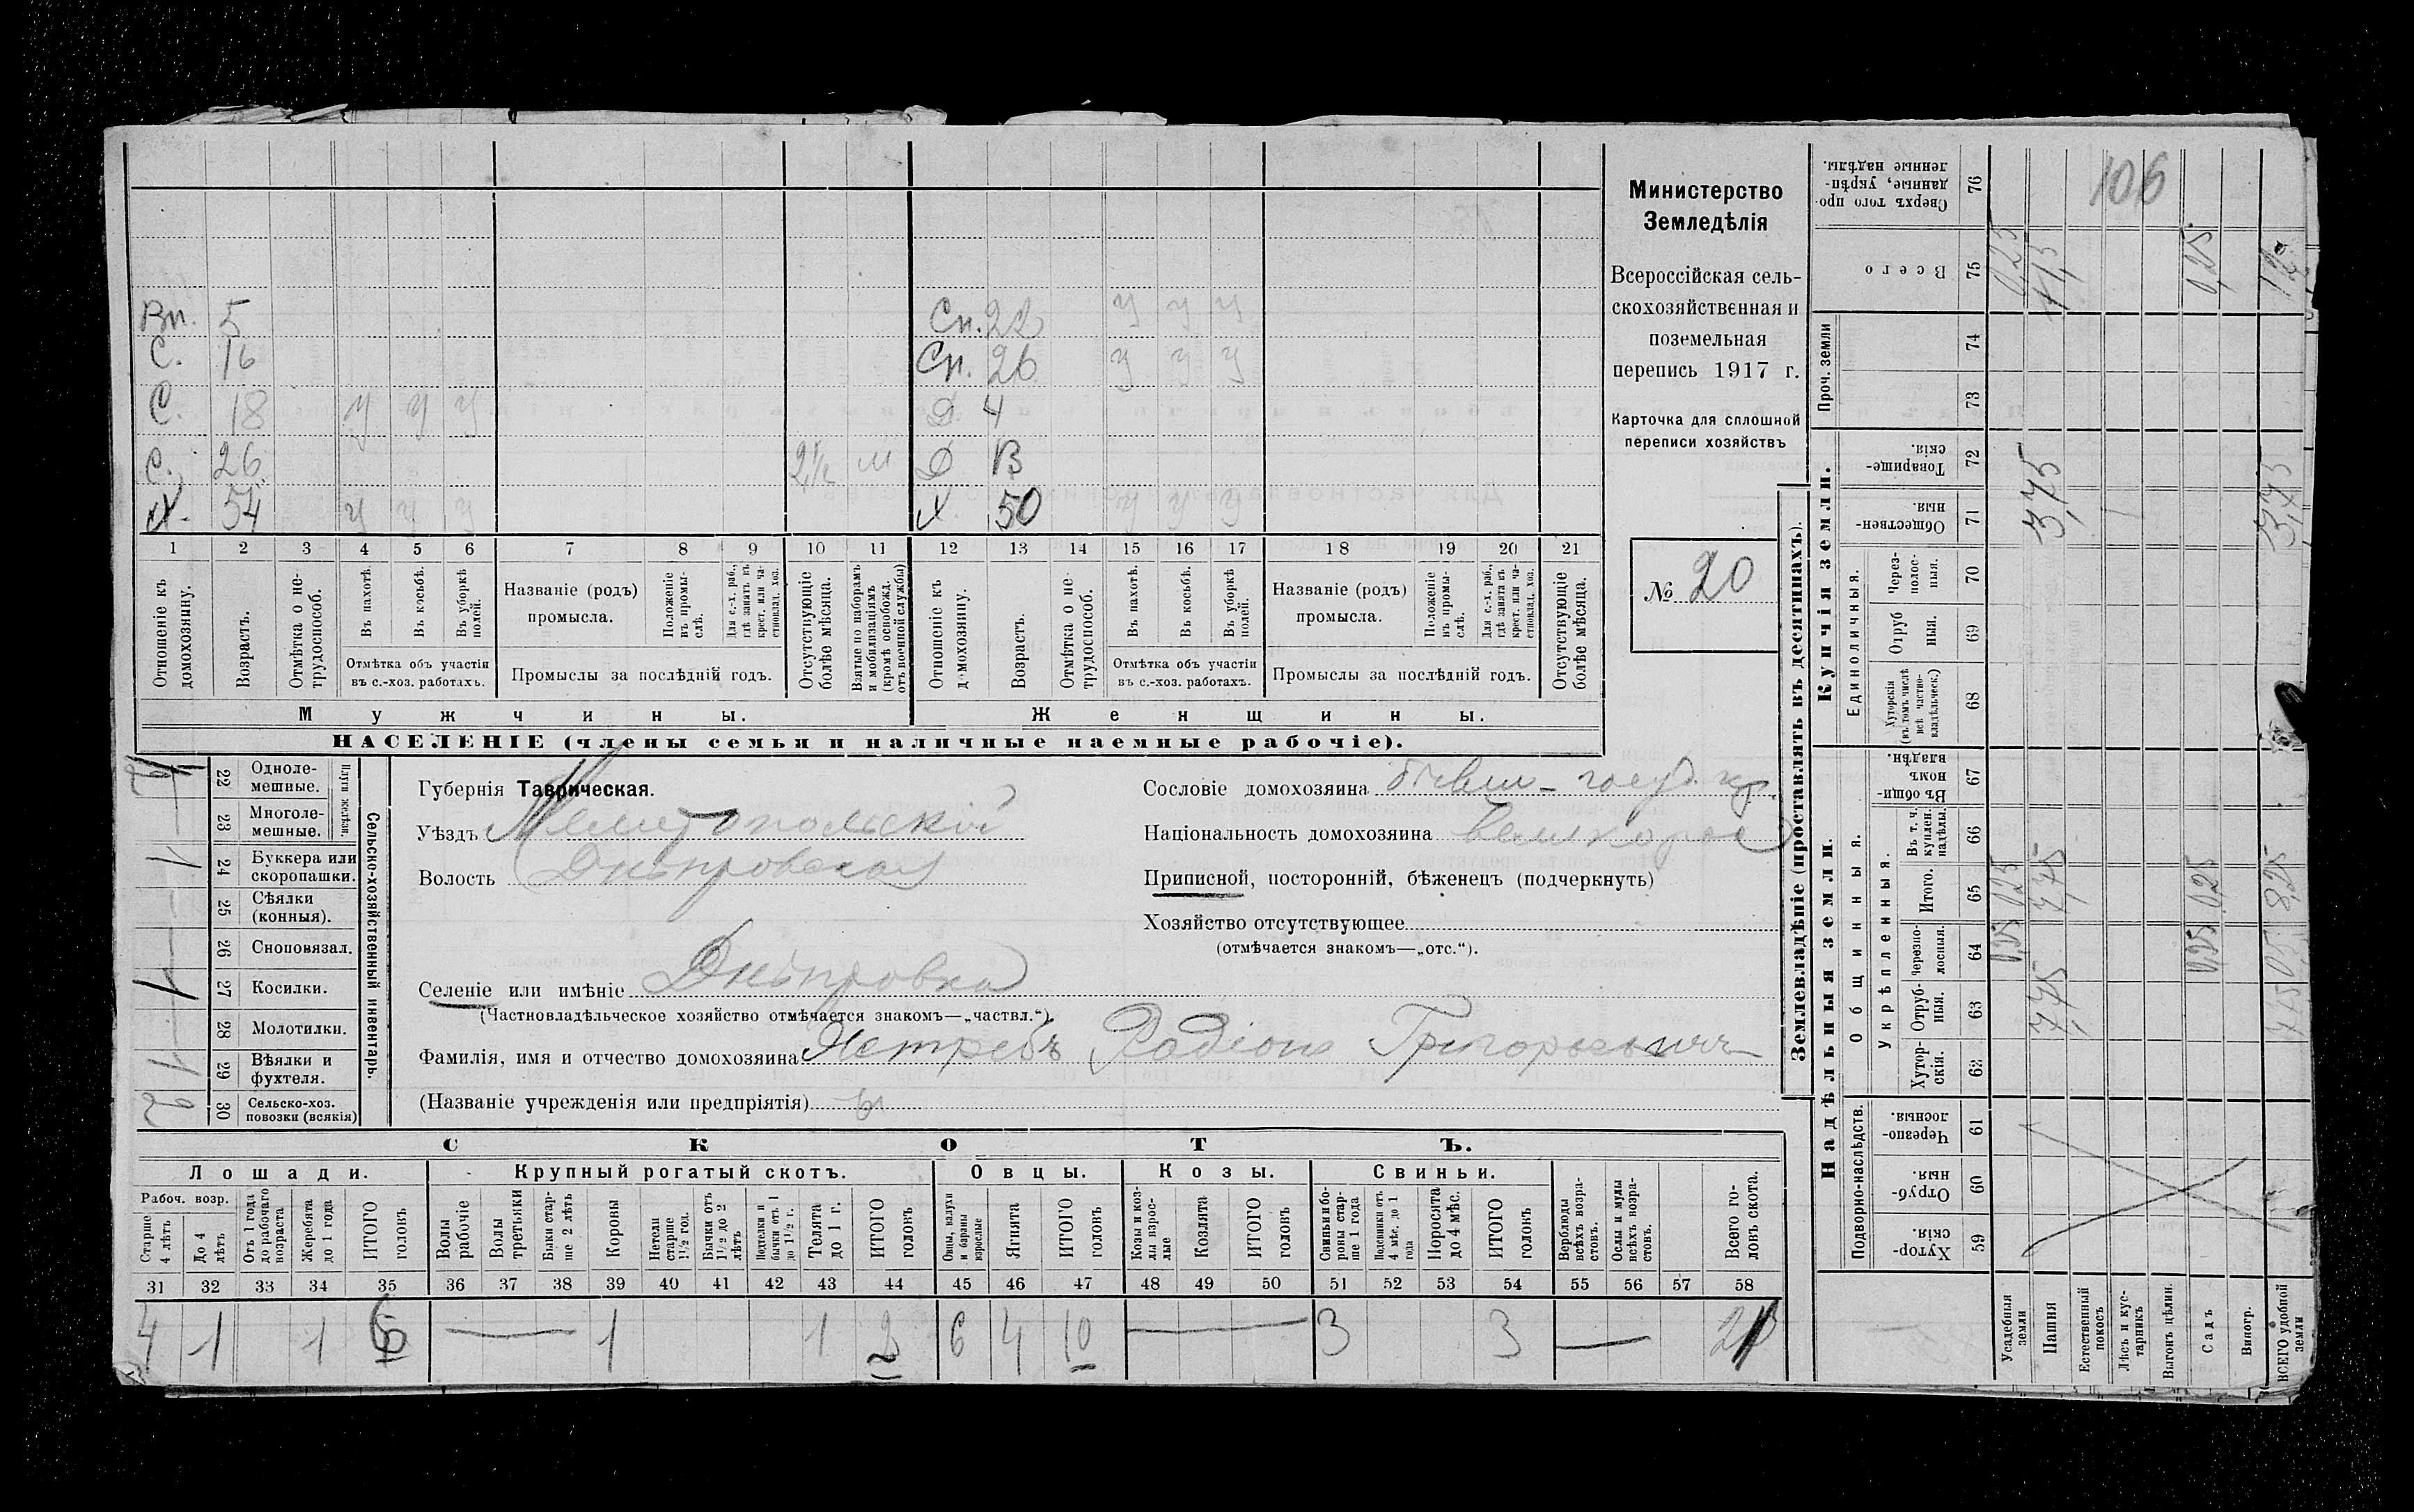 Министерство
Земледѣлія
Всероссійская сель-
скохозяйственная и
поземельная
перепись 1917 г.
Карточка для сплошной
переписи хозяйствъ
№ 20
Вп. 5
С. 16
С. 18 у у у
С. 26 2½ м
Х. 54 у у у
Сн. 22 у у у
Сн. 26 у у у
Д. 4
Д В
Х 50 у у у
1 2 3 4 5 6 7 8 9 10 11 12 13 14 15 16 17 18 19 20 21
Отношеніе къ домохозяину.
Возрастъ.
Отмѣтка о не-трудоспособ.
Въ пахотѣ.
Въ косьбѣ.
Въ уборкѣ полей.
Отмѣтка объ участіи въ с.-хоз. работахъ.
Названіе (родъ) промысла.
Положеніе въ промы-слѣ.
Для с.-х. раб., гдѣ занятъ въ крест. или ча-стновлад. хоз.
Промыслы за послѣдній годъ.
Отсутствующіе болѣе мѣсяца.
Взятые по наборамъ и мобилизаціямъ (кромѣ освобожд. отъ военной службы)
Отношеніе къ домохозяину.
Возрастъ.
Отмѣтка о не-трудоспособ.
Въ пахотѣ.
Въ косьбѣ.
Въ уборкѣ полей.
Отмѣтка объ участіи въ с.-хоз. работахъ.
Названіе (родъ) промысла.
Положеніе въ промы-слѣ.
Для с.-х. раб., гдѣ занята въ крест. или ча-стновлад. хоз.
Промыслы за послѣдній годъ.
Отсутствующіе болѣе мѣсяца.
Мужчины.
Женщины.
НАСЕЛЕНІЕ (члены семьи и наличные наемные рабочіе).
22 Одноле-мешные. 2
23 Многоле-мешные. —
Плуги желѣзн.
24 Буккера или скоропашки. 1
25 Сѣялки (конныя). —
26 Сноповязал. —
27 Косилки. 1
28 Молотилки. —
29 Вѣялки и фухтеля. 1
30 Сельско-хоз. повозки (всякія) 2
Сельско-хозяйственный инвентарь.
Губернія Таврическая.
Уѣздъ Мелитопольскій
Волость Днѣпровская
Селеніе или имѣніе Днѣпровка
(Частновладѣльческое хозяйство отмѣчается знакомъ—„частвл.“)
Фамилія, имя и отчество домохозяина Ястребъ Радіонъ Григорьевичъ
(Названіе учрежденія или предпріятія)
Сословіе домохозяина бывш. госуд. кр.
Національность домохозяина Великоросъ
Приписной, посторонній, бѣженецъ (подчеркнуть)
Хозяйство отсутствующее
(отмѣчается знакомъ—„отс.“).
СКОТЪ.
Лошади.
Крупный рогатый скотъ.
Овцы.
Козы.
Свиньи.
Рабоч. возр.
Старше 4 лѣтъ
До 4 лѣтъ
Отъ 1 года до рабочаго возраста
Жеребята до 1 года
ИТОГО головъ
Волы рабочіе
Волы третьяки
Быки стар-ше 2 лѣтъ
Коровы
Нетели старше 1½ год.
Бычки отъ 1½ до 2 лѣтъ
Подтелки и бычки отъ 1 до 1½ г.
Телята до 1 г.
ИТОГО головъ
Овцы, валухи и бараны взрослые
Ягнята
ИТОГО головъ
Козы и коз-лы взрос-лые
Козлята
ИТОГО головъ
Свиньи и бо-ровы стар-ше 1 года
Подсвинки отъ 4 мѣс. до 1 года
Поросята до 4 мѣс.
ИТОГО головъ
Верблюды всѣхъ возра-стовъ.
Ослы и мулы всѣхъ возра-стовъ.
Всего го-ловъ скота.
31 32 33 34 35 36 37 38 39 40 41 42 43 44 45 46 47 48 49 50 51 52 53 54 55 56 57 58
4 1 1 6 — 1 1 2 6 4 10 — 3 3 — 21
Землевладѣніе (проставлять въ десятинахъ).
Надѣльныя земли.
Купчія земли.
Проч. земли
Подворно-наслѣдств.
Общинныя.
Укрѣпленныя.
Единоличныя.
Хутор-скія. 59
Отруб-ныя. 60
Черезпо-лосныя. 61
Хутор-скія. 62
Отруб-ныя. 63
Черезпо-лосныя. 64
Итого. 65
Въ т. ч. куплен. надѣлы. 66
Въ общи-номъ владѣн. 67
Хуторскія (въ томъ числѣ всѣ частно-владѣльческ.) 68
Отруб ныя. 69
Через-полос-ныя. 70
Обществен-ныя. 71
Товарище-скія. 72
73
74
Всего 75
Сверхъ того про-данные, укрѣп-ленные надѣлы. 76
106
Усадебныя земли 0,25 0,25 0,25
Пашня 7,75 7,75 3,75
Естественный покосъ
Лѣсъ и кус-тарникъ
Выгонъ цѣлин.
Садъ 0,25 0,25 0,25
Виногр.
ВСЕГО удобной земли 7,75 0,5 8,25 3,75